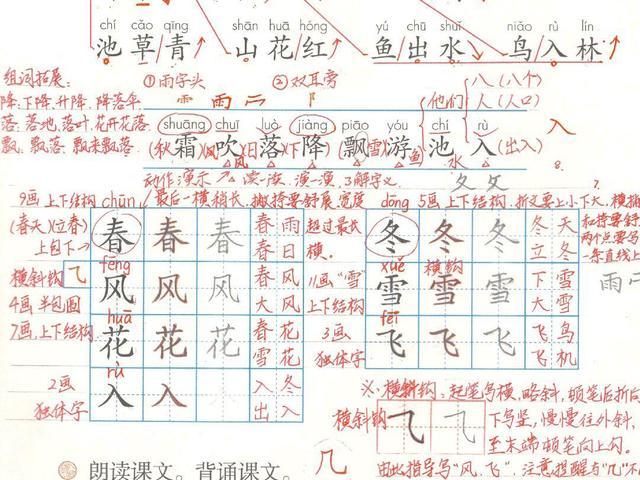 chí cǎo qīng shān huā hóng yú chū shuǐ niǎo rù lín
池草/青 山花/红 鱼/出水 鸟/入林
组词拓展: ①雨字头 ②双耳旁 八(八个)
降:下降,升降,降落伞 他们 人(人口)
落:落地,落叶,花开花落 shuāng chuī luò jiàng piāo yóu chí rù 入
飘:飘落 飘来飘落 (秋)霜(风)吹(日)落(下)降 飘(雪)游 池 入(出入)
动作演示 读一读,演一演,了解字义
9画 上下结构 chūn 最后一横稍长,撇捺要舒展,宽度 dōng 5画 上下结构,折文要上小下大,横撇
(春天)(立春) 春 春 春 春雨 超过最长 冬 冬 冬 冬天 和捺要舒
上包下 春日 横。 立冬 两个点要写
fēng xuě 横钩 一条直线上
横斜钩 风 风 风 春风 11画"雪" 雪 雪 雪 下雪
4画 半包围 大风 上下结构 大雪
huā fēi
7画,上下结构 花 花 花 春花 3画 飞 飞 飞 飞鸟
雪花 独体字 飞机
rù
2画 入 入 入冬
独体字 出入
※:横斜钩:起笔写横,略斜,顿笔后折向
横斜钩 下写竖,慢慢往外斜,
至末端顿笔向上勾。
几 由此指导写"风、飞",注意提醒与"几"不
朗读课文。背诵课文。